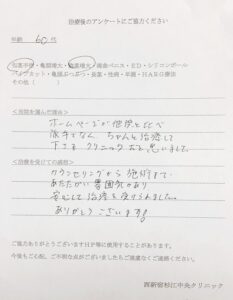 治療後のアンケートにご協力ください
年齢 60代
包茎手術・亀頭増大・陰茎増大・ED・シリコンボール
パイプカット・亀頭ぶつぶつ・長茎・性病・早漏・HARG療法
その他（ ）
＜当院を選んだ理由＞
ホームページが他院と比べ
派手でなく、ちゃんと治療して
下さるクリニックだと思いました。
＜治療を受けての感想＞
カウンセリングから施術まで
あたたかい雰囲気があり
安心して治療を受けられました。
ありがとうございます。
ご協力ありがとうございます HP等に使用することがあります。
今後もご心配、ご不明な点がございましたらご遠慮なくご連絡ください。
西新宿杉江中央クリニック